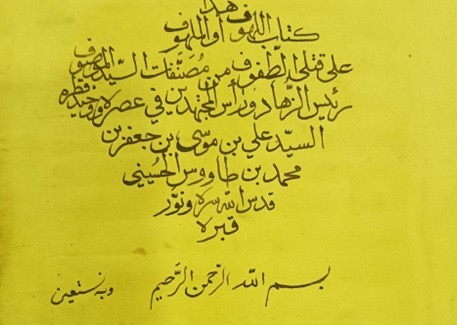 هذا
كتاب اللهوف أو الملهوف
على قتلى الطفوف من مصنّفات السيّد الموصوف
رئيس الزهّاد ورأس المجتهدين في عصره ووحيد قطره
السيّد علي بن موسى بن جعفر بن
محمد بن طاووس الحُسيني
قدس الله سره ونوّر
قبره
بسم الله الرّحمن الرَّحيم وبه نستعين